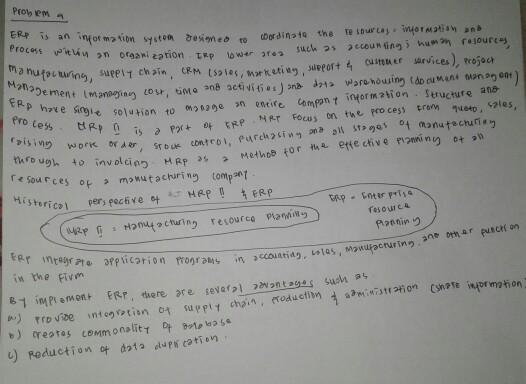 Problem 9
ERP is an information system designed to coordinate the resources, information and
process within an organization. ERP lower area such as accounting, human resources,
manufacturing, supply chain, CRM (sales, marketing, support & customer services), project
Management (managing cost, time and activities) and data warehousing (document management)
ERP have single solution to manage an entire company information. structure and
process. MRP II is a part of ERP. MRP Focus on the process from quoto, sales,
raising work order, stock control, purchasing and all stages of manufacturing
through to involcing. MRP as a Method for the effective planning of all
resources of a manufacturing company.
Historical perspective of MRP II & ERP
MRP II = Manufacturing resource planning
ERP = Enterprise
resource
Planning
ERP integrate application programs in accounting, sales, manufacturing, and other function
in the firm
By implement ERP, there are several advantages such as.
a) Provide integration of supply chain, production & administration (share information)
b) creates commonality of database
c) Reduction of data duplication.